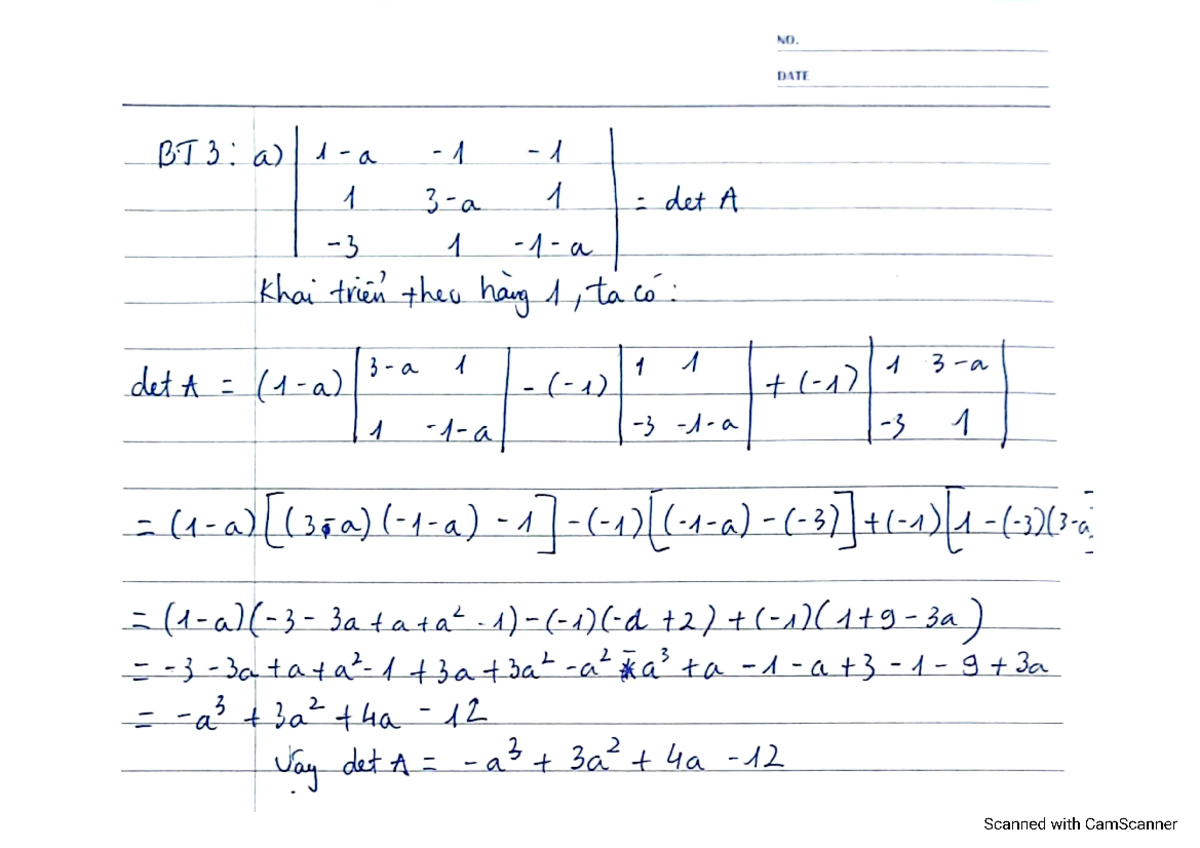 NO.
DATE
BT3: a) | 1-a -1 -1 |
| 1 3-a 1 | = det A
| -3 1 -1-a |
Khai triển theo hàng 1, ta có:
det A = (1-a) | 3-a 1 | - (-1) | 1 1 | + (-1) | 1 3-a |
| 1 -1-a | | -3 -1-a | | -3 1 |
= (1-a)[(3-a)(-1-a) - 1] - (-1)[(-1-a) - (-3)] + (-1)[1 - (-3)(3-a
= (1-a)(-3 - 3a + a + a² - 1) - (-1)(-a + 2) + (-1)(1 + 9 - 3a)
= -3 - 3a + a + a² - 1 + 3a + 3a² - a² - a³ + a - 1 - a + 3 - 1 - 9 + 3a
= -a³ + 3a² + 4a - 12
Vậy det A = -a³ + 3a² + 4a - 12
Scanned with CamScanner